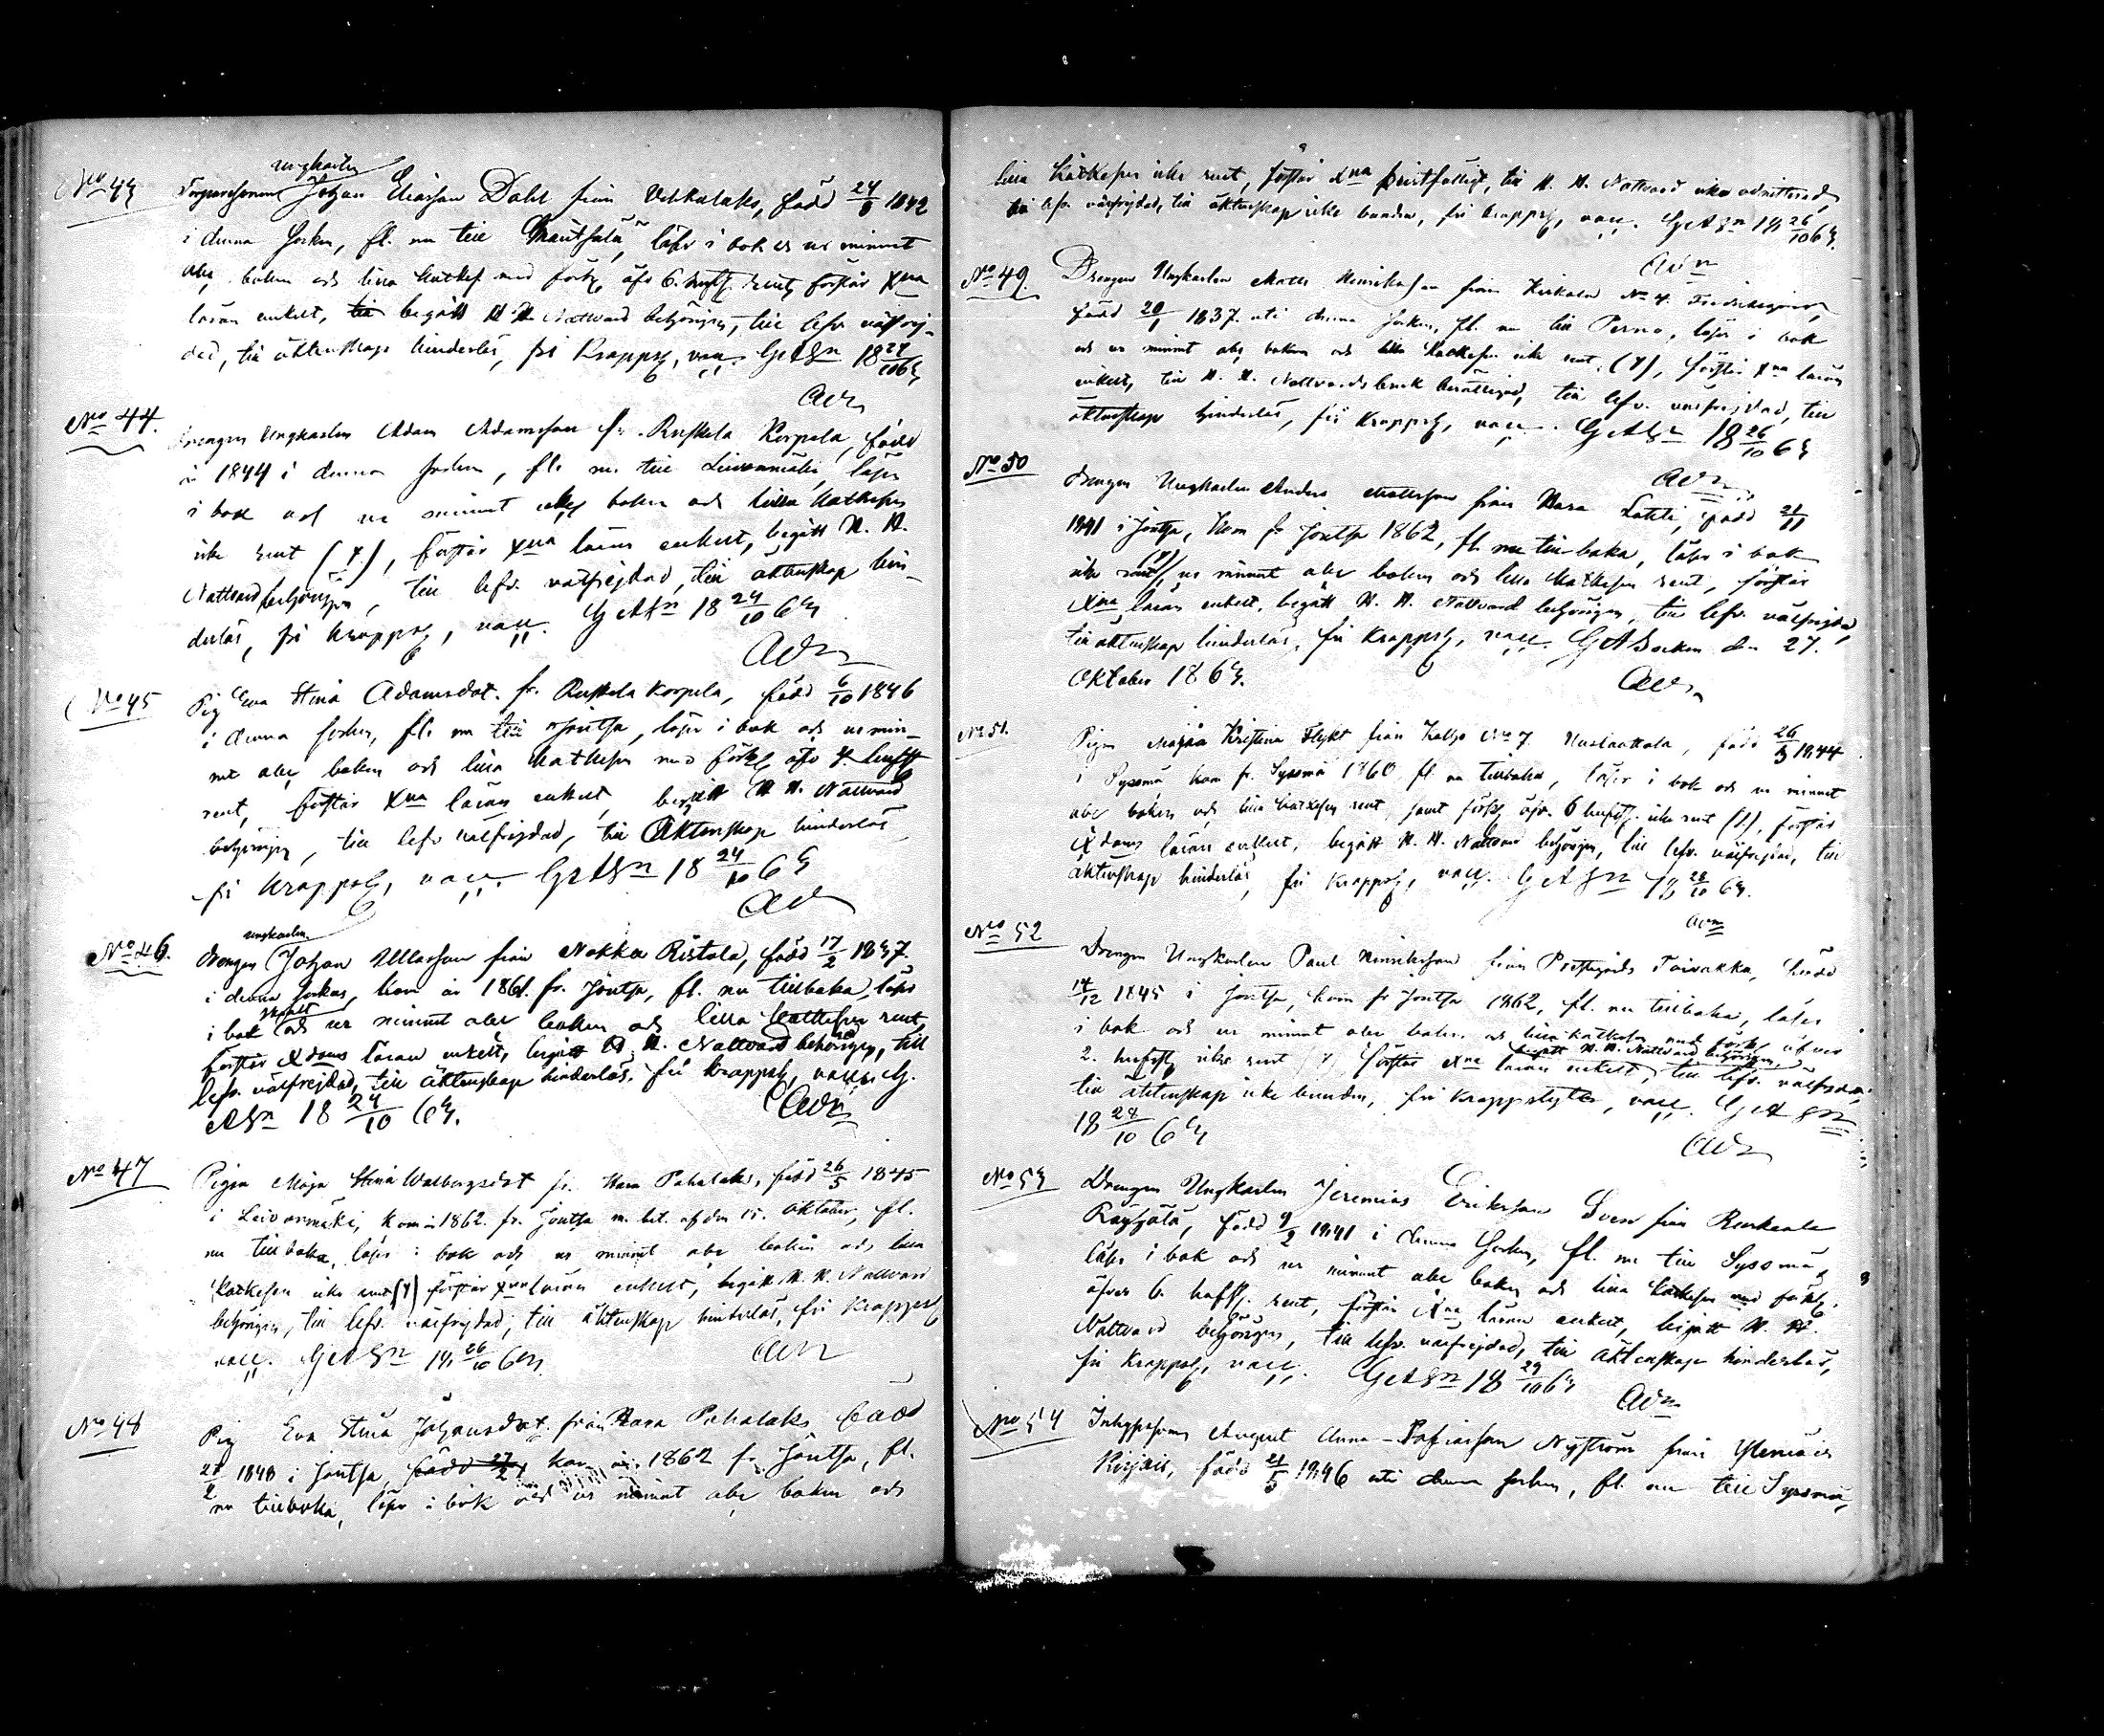 ungkarlen
No 43 Torparesonen Johan Eliasson Dahl från Vekkulaks, född 24/8 1842
i denna socken, fl. nu till Mäntsälä, läser i bok och ur minnet
abc boken och lilla katkes. med förkl. öfr. 6. hufst. rent, förstår Xna
läran enkelt, begått H. H. Nattvard behörigen, till lefv. välfrej-
dad, till äktenskap hinderlös, fri kroppsl, vacc. G A Sn 18 24/10 63
Adn
No 44. Drengen Ungkarlen Adam Adamsson fr. Ruskela Korpela, född
år 1844 i denna socken, fl. nu till Leivonmäki, läser
i bok och ur minnet abc boken och lilla katkesen
icke rent (x), förstår Xna läran enkelt, begått H. H.
Nattvard behörigen, till lefv. välfrejdad, till äktenskap hin-
derlös, fri kroppsl, vacc. G A Sn 18 24/10 63
Adn
No 45 Pig Eva Stina Adamsdot. fr. Ruskela Korpela, född 6/10 1846
i denna socken, fl. nu till Joutsa, läser i bok och ur min-
net abc boken och lilla katkesen med förkl öfv 4. hufst
rent, förstår Xna läran enkelt, begått H. H. Nattvard
behörigen, till lefv välfrejdad, till Äktenskap hinderlös
fri kroppsl, vacc. G A Sn 18 24/10 63
Adn
ungkarlen
No 46. Drengen Johan Ullasson från Nokka Ristola, född 17/2 1837.
i denna socken, kom år 1861. fr. Joutsa, fl. nu tillbaka, läser
i bok och ur minnet abc boken och lilla katkesen rent,
förstår Xdoms läran enkelt, begått H. H. Nattvard behörigen, till
lefv. välfrejdad, till äktenskap hinderlös, fri kroppsl, vacc, G.
A Sn 18 24/10 63.
Adn
No 47 Pigan Maja Stina Walborgsdot fr. Hara Pahalaks, född 26/5 1845
i Leivonmäki, kom år 1862. fr. Joutsa m. bet. af den 15. Oktober, fl.
nu tillbaka, läser i bok och ur minnet abc boken och lilla
katkesen icke rent (x) förstår Xna läran enkelt, begått H. H. Nattvard
behörigen, till lefv. välfrejdad, till äktenskap hinderlös, fri kroppsl
vacc. G A Sn 18 26/10 63.
Adn
No 48 Pig Eva Stina Johansdot. från Hara Pahalaks född
27/2 1848 i Joutsa, född 27/2, kom år 1862 fr. Joutsa, fl.
nu tillbaka, läser i bok och ur minnet abc boken och
lilla katkesen icke rent, förstår Xna bristfälligt, till H. H. Nattvard icke admitterad,
till lefv. välfrejdad, till äktenskap icke bunden, fri kroppsl, vacc. G A Sn 18 26/10 63.
Adn
No 49. Drengen Ungkarlen Matts Henriksson från No 4.
född 20/1 1837. uti denna socken, fl. nu till Perno, läser i bok
och ur minnet abc boken och lilla katkesen icke rent, (x), förstår Xna läran
enkelt, till H. H. Nattvards bruk berättigad, till lefv. välfrejdad, till
äktenskap hinderlös, fri kroppsl, vacc. G A Sn 18 26/10 63
Adn
No 50 Drengen Ungkarlen Anders Mattsson från Hara Lahti, född 21/11
1841 i Joutsa, kom fr Joutsa 1862, fl. nu tillbaka, läser i bok
icke rent (x), ur minnet abc boken och lilla katkesen rent, förstår
Xna läran enkelt, begått H. H. Nattvard behörigen, till lefv. välfrejdad,
till äktenskap hinderlös, fri kroppsl, vacc. G A Socken den 27.
Oktober 1863.
Adn
No 51. Pigan Maja Kristina Flykt från Kalho No 7. född 26/3 1844
i Syssmä, kom fr. Syssmä 1860 fl. nu tillbaka, läser i bok och ur minnet
abc boken och lilla katkesen rent, samt förkl öfv. 6 hufst. icke rent (x), förstår
Xdoms läran enkelt, begått H. H. Nattvard behörigen, till lefv. välfrejdad, till
äktenskap hinderlös, fri kroppsl, vacc. G A Sn 18 28/10 63.
Adn
No 52 Drengen Ungkarlen Paul Henriksson från Toivakka, född
14/12 1845 i Joutsa, kom fr Joutsa 1862, fl. nu tillbaka, läser
i bok och ur minnet abc boken och lilla katkesen med förkl öfver
2. hufst, icke rent (x, förstår Xna läran enkelt, begått H. H. Nattvard behörigen, till lefv. välfrejdad,
till äktenskap icke bunden, fri kroppslyten, vacc. G A Sn
18 24/10 63
Adn
No 53 Drengen Ungkarlen Jeremias Eriksson Sven från
född 9/2 1841 i denna socken, fl. nu till Syssmä,
läser i bok och ur minnet abc boken och lilla katkesen med förkl.
öfver 6. hufst. rent, förstår Xna läran enkelt, begått H. H.
Nattvard behörigen, till lefv. välfrejdad, till äktenskap hinderlös,
fri kroppsl, vacc. G A Sn 18 29/10 63
Adn
No 54 Inhysesson August Anna-Sofiasson Nyström från
född 21/5 1846 uti denna socken, fl. nu till Syssmä,